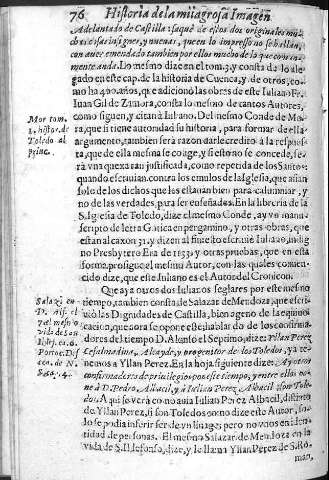 76 Historia de la milagrosa Imagen
Adelantado de Castilla: saquè de estos dos originales mu-
chas cosas insignes, y nueuas, que en lo impresso no se hallan,
con auer emendado tambien por ellos mucho de lo que comun-
mente anda. Lo mesmo en el tom. 3. y consta de lo ale-
gado en este cap. de la historia de Cuenca, y de otros, co-
mo ha 400. años, que adicionò las obras de este Iuliano Fr.
Iuan Gil de Zamora, consta lo mesmo de tantos Autores,
como siguen, y citan à Iuliano. Del mesmo Conde de Mo-
ra, que si tiene autoridad su historia, para formar de ella
argumento, tambien serà razon darle credito à la respues-
ta, que de ella mesma se coge, y si esto no se concede, se-
rà vna quexa tan justificada, como repetida de los Santos:
quando escriuian contra los emulos de la Iglesia, que asian
solo de los dichos que les estauan bien para calumniar, y
no de las verdades, para ser enseñados. En la libreria de la
S. Iglesia de Toledo, dize el mesmo Conde, ay vn manu-
scripto de letra Gotica en pergamino, y otras obras, que
estàn al caxon 31. y dizen al fin: esto escriuiò Iuliano, indig
no Presbytero Era de 1153. y otras pueuas, que en esta
forma prosigue el mesmo Autor, con las quales conuen-
cido dize, que este Iuliano es el Autor del Cronicon.
Que aya otros dos Iulianos seglares por este mesmo
tiempo, tambien consta de Salazar de Mendoza, que escri-
uiò las Dignidades de Castilla, bien ageno de la equiuo-
cacion, que aora se opone: este habla de los confirma-
dores del tiempo D. Alonso el Septimo, dize: Yllan Perez
Alcayde, y progenitor de los Toledos, ya te-
nemos a Yllan Perez. En la hoja siguiente dize: Ay otros
confirmadores de priuilegios por este tiempo, y entre ellos po-
ne à D. Pedro Albacil, y à Iulian Perez Albacil son Tole-
dos. A qui se verà como auia Iulian Perez Albacil, distinto
de Yllan Perez, i son Toledos como dize este Autor, so-
lo se podia inferir ser de vn linage; pero no vnos en iden-
tidad de personas. El mesmo Salazar de Mendoza en la
vida de S. Ildefonso, dize, y le llama Yllan Perez de S. Ro-
man,
Mor. tom.
2. histor. de
Toledo al
princ.
Salaz. en
D.